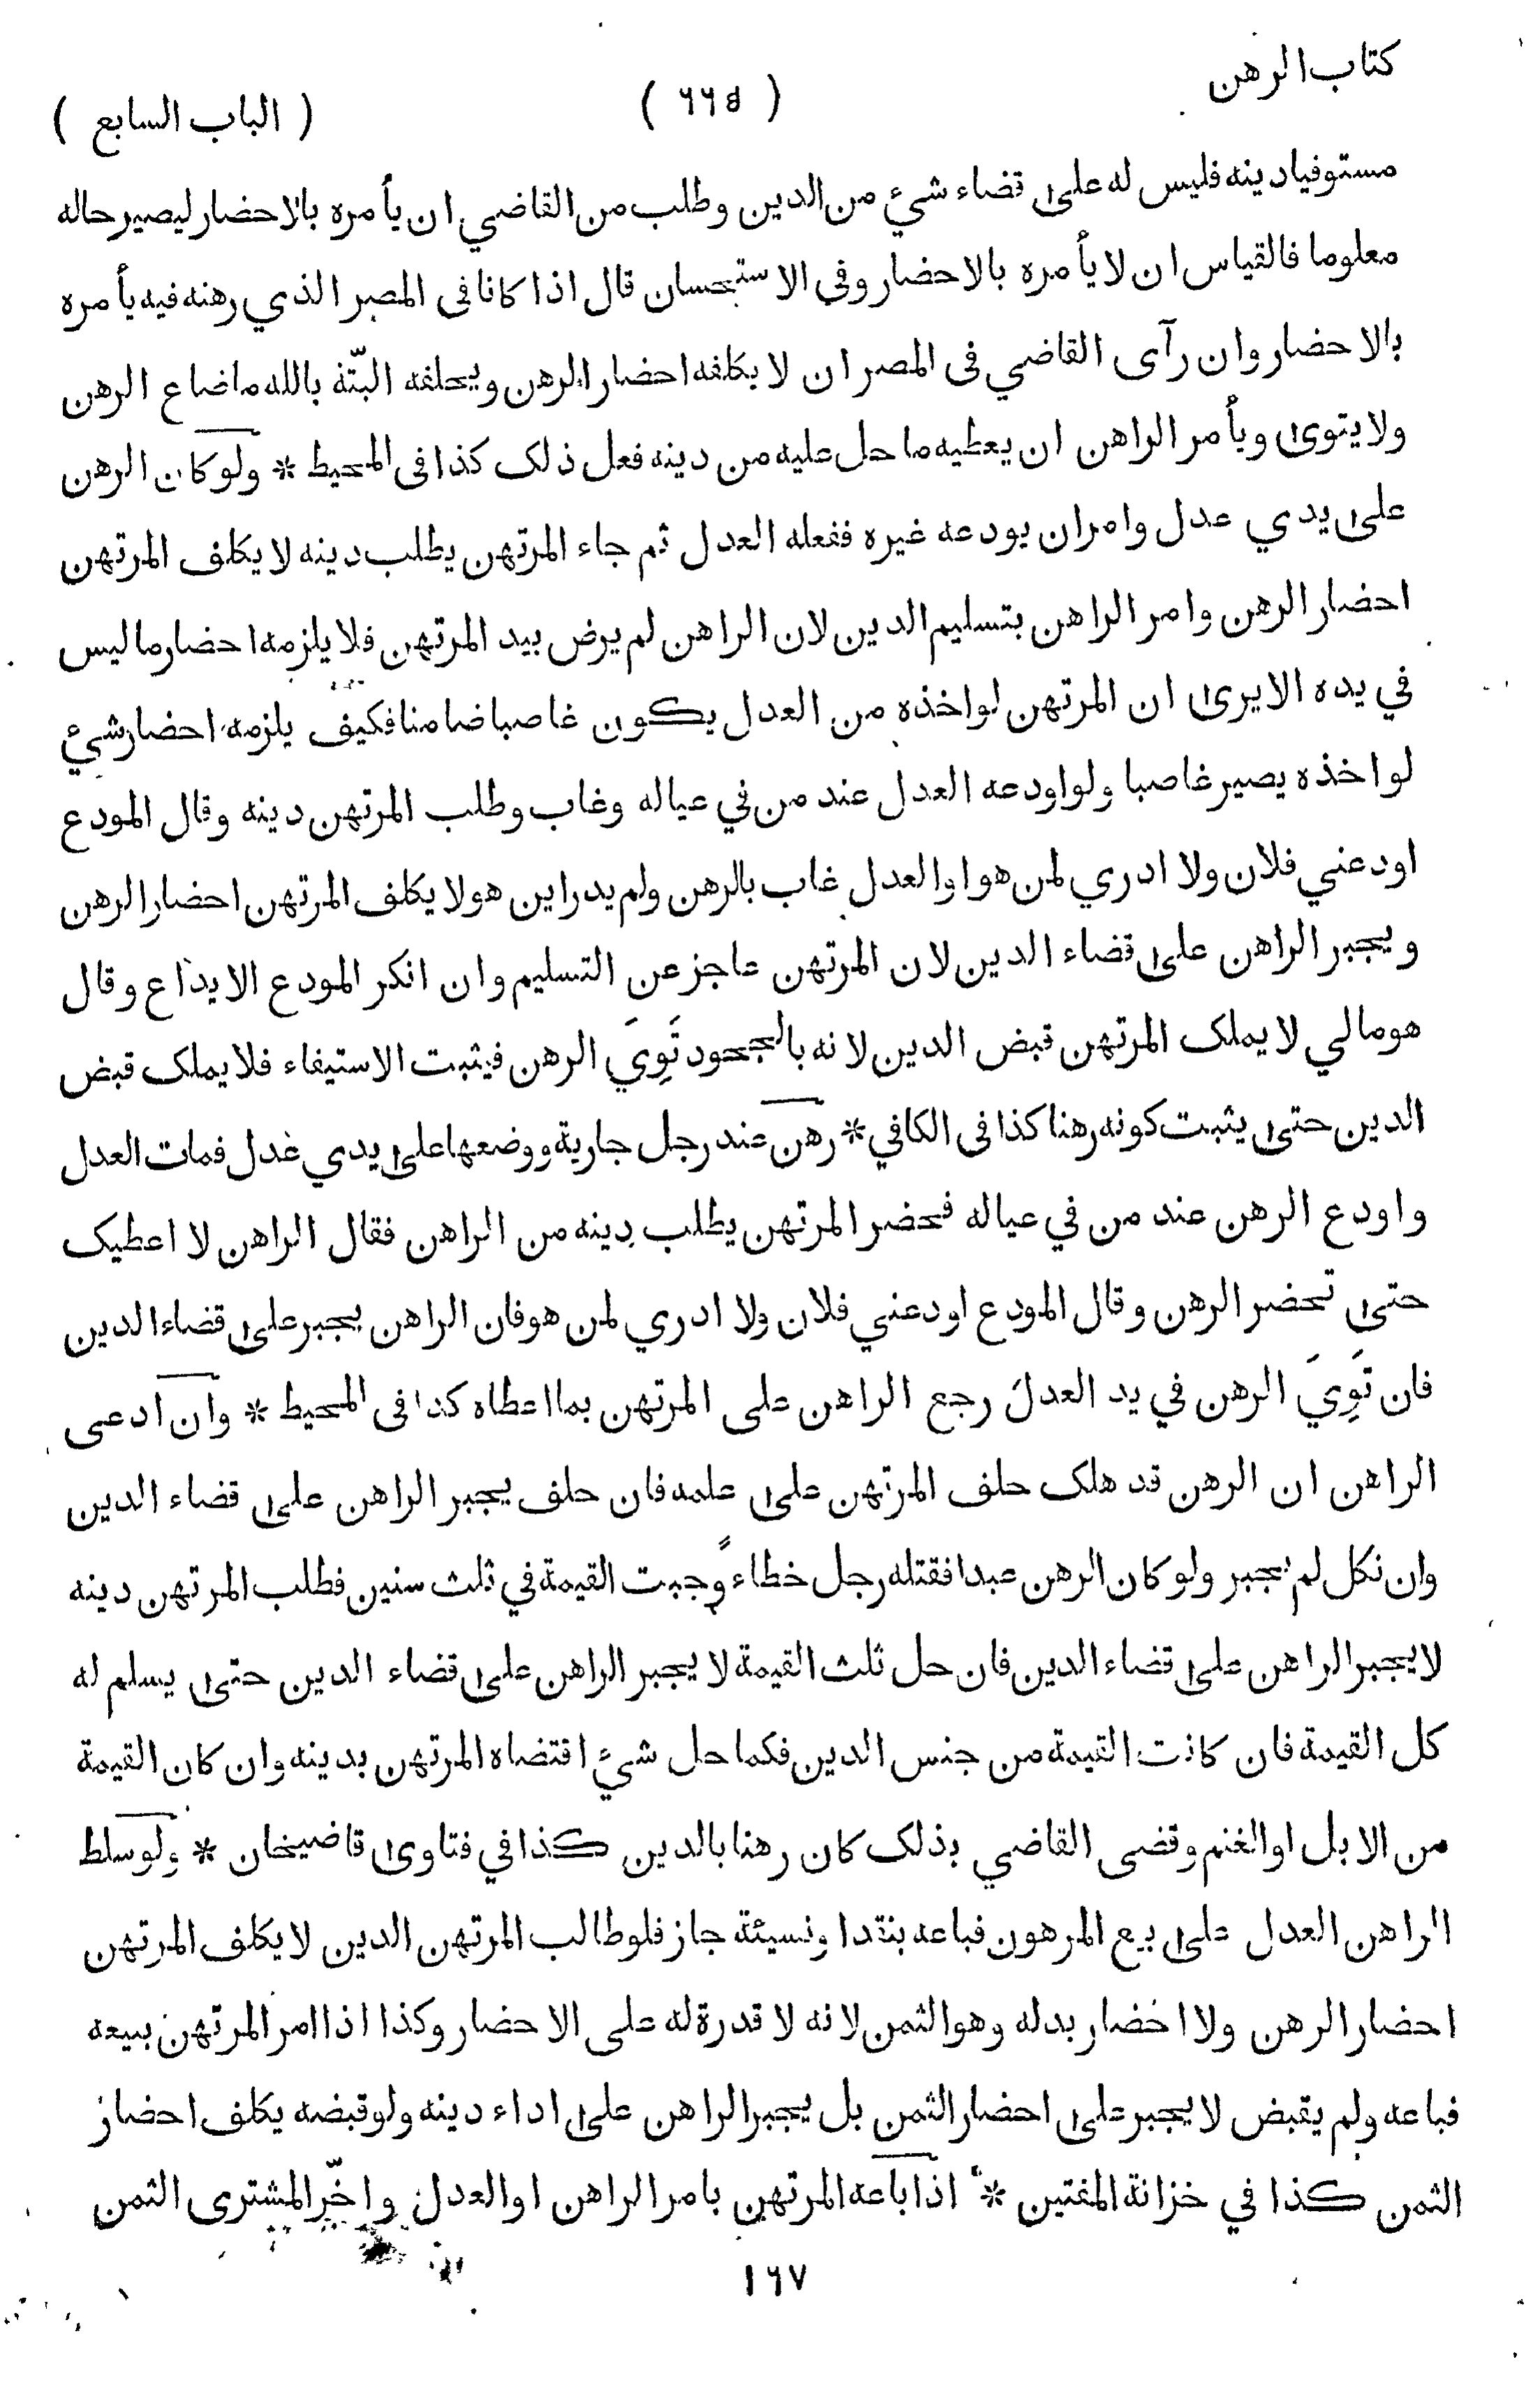 كتاب الرهن
( ٦٦٥ )
( الباب السابع )
مستوفيا دينه فليس له على قضاء شيء من الدين وطلب من القاضي ان يأمره بالاحضار ليصير حاله
معلوما فالقياس ان لا يأمره بالاحضار وفي الاستحسان قال اذا كانا فى المصر الذي رهنه فيه يأمره
بالاحضار وان رآى القاضي فى المصر ان لا يكلفه احضار الرهن ويحلفه البتّة بالله ما ضاع الرهن
ولا يتوى ويأمر الراهن ان يعطيه ما حل عليه من دينه فعل ذلك كذا فى المحيط * ولو كان الرهن
على يدي عدل وامر ان يودعه غيره ففعله العدل ثم جاء المرتهن يطلب دينه لا يكلف المرتهن
احضار الرهن وامر الراهن بتسليم الدين لان الراهن لم يرض بيد المرتهن فلا يلزمه احضار ما ليس
في يده الا يرى ان المرتهن لو اخذه من العدل يكون غاصبا ضامنا فكيف يلزمه احضار شيء
لو اخذه يصير غاصبا ولو اودعه العدل عند من في عياله وغاب وطلب المرتهن دينه وقال المودع
اودعني فلان ولا ادري لمن هو او العدل غاب بالرهن ولم يدر اين هو لا يكلف المرتهن احضار الرهن
ويجبر الراهن على قضاء الدين لان المرتهن عاجز عن التسليم وان انكر المودع الايداع وقال
هو مالي لا يملك المرتهن قبض الدين لانه بالجحود تَوِيَ الرهن فيثبت الاستيفاء فلا يملك قبض
الدين حتى يثبت كونه رهنا كذا فى الكافي * رهن عند رجل جارية ووضعها على يدي عدل فمات العدل
واودع الرهن عند من في عياله فحضر المرتهن يطلب دينه من الراهن فقال الراهن لا اعطيك
حتى تحضر الرهن وقال المودع اودعني فلان ولا ادري لمن هو فان الراهن يجبر على قضاء الدين
فان تَوِيَ الرهن في يد العدل رجع الراهن على المرتهن بما اعطاه كذا فى المحيط * وان ادعى
الراهن ان الرهن قد هلك حلف المرتهن على علمه فان حلف يجبر الراهن على قضاء الدين
وان نكل لم يجبر ولو كان الرهن عبدا فقتله رجل خطاءً وجبت القيمة في ثلث سنين فطلب المرتهن دينه
لا يجبر الراهن على قضاء الدين فان حل ثلث القيمة لا يجبر الراهن على قضاء الدين حتى يسلم له
كل القيمة فان كانت القيمة من جنس الدين فكما حل شيء اقتضاه المرتهن بدينه وان كان القيمة
من الابل او الغنم وقضى القاضي بذلك كان رهنا بالدين كذا في فتاوى قاضيخان * ولو سلط
الراهن العدل على بيع المرهون فباعه بنقد او نسيئة جاز فلو طالب المرتهن الدين لا يكلف المرتهن
احضار الرهن ولا احضار بدله وهو الثمن لانه لا قدرة له على الاحضار وكذا اذا امر المرتهن ببيعه
فباعه ولم يقبض لا يجبر على احضار الثمن بل يجبر الراهن على اداء دينه ولو قبضه يكلف احضار
الثمن كذا في خزانة المفتين * اذا باعه المرتهن بامر الراهن او العدل واخّر المشترى الثمن
١٦٧